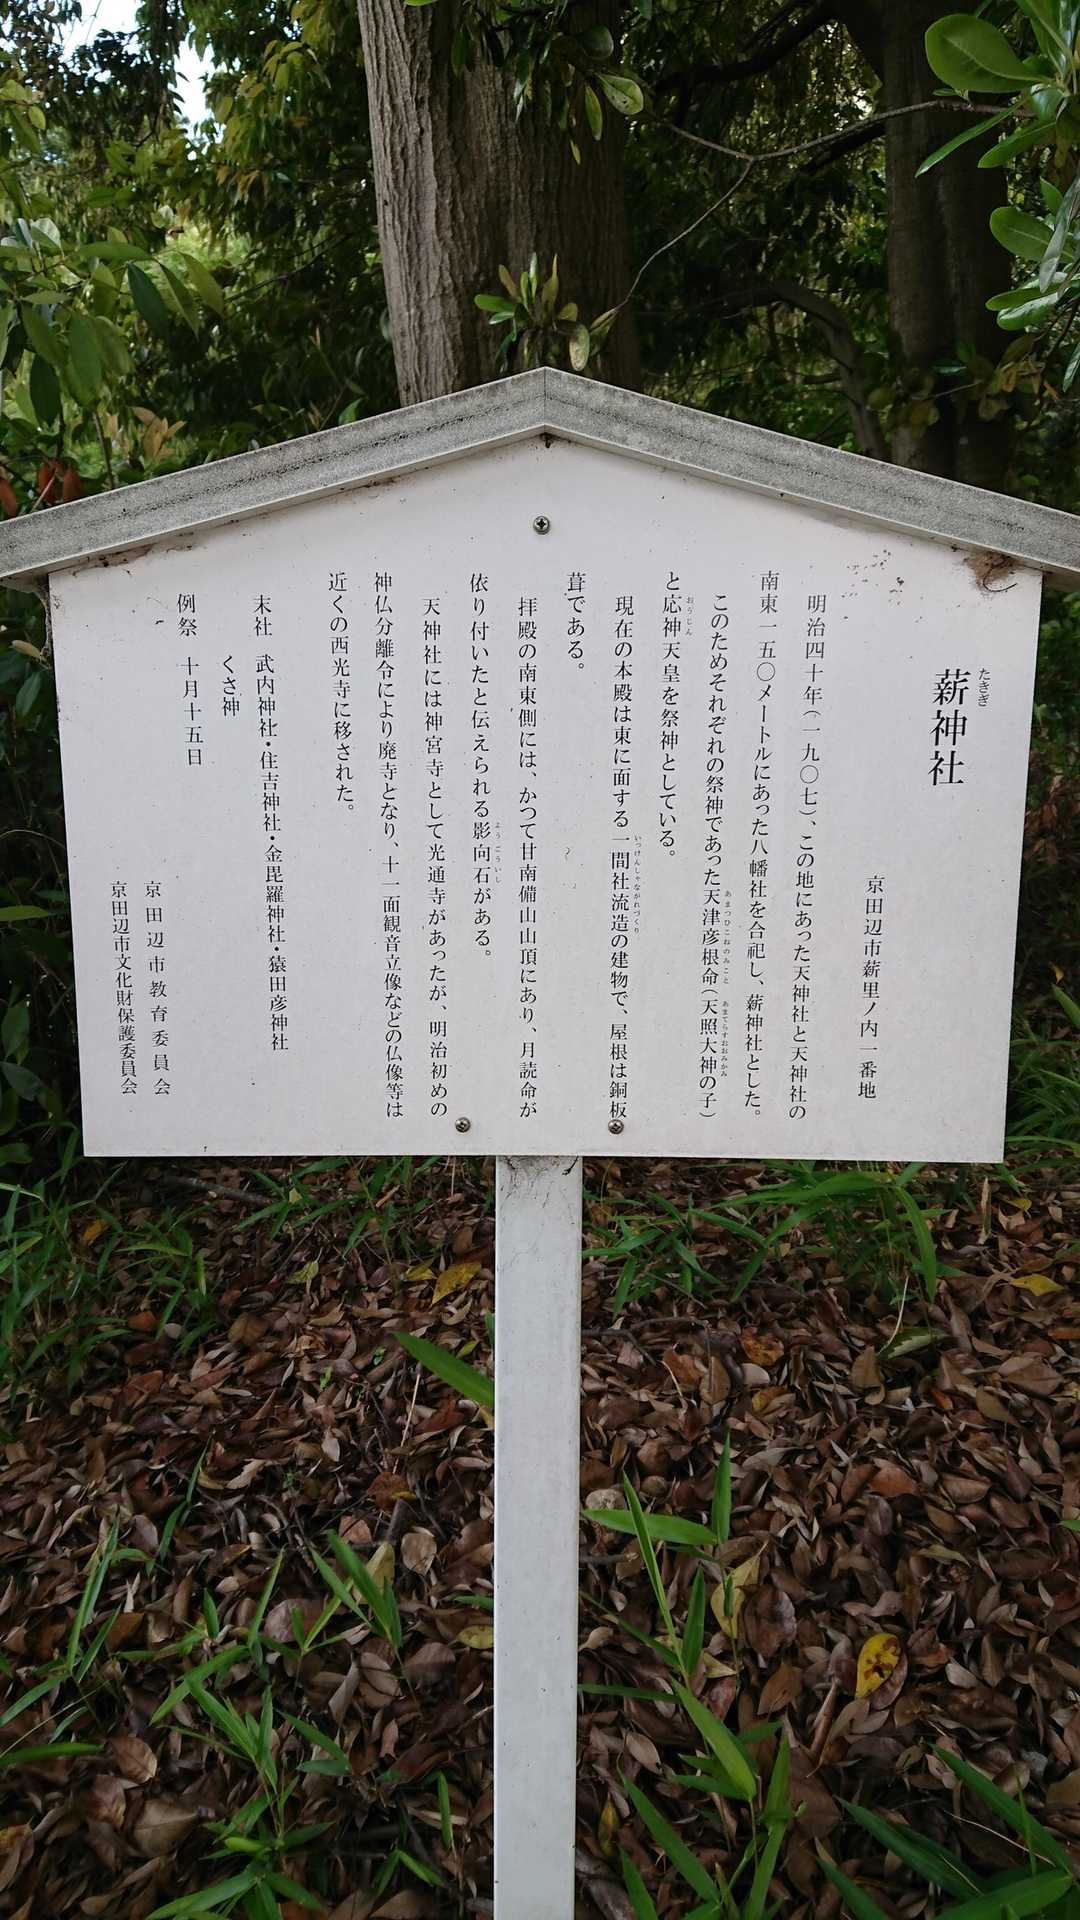 薪神社
たきぎ
京田辺市薪里ノ内一番地
明治四十年(一九〇七)、この地にあった天神社と天神社の
南東一五〇メートルにあった八幡社を合祀し、薪神社とした。
このためそれぞれの祭神であった天津彦根命(天照大神の子)
あまつひこねのみこと あまてらすおおみかみ
と応神天皇を祭神としている。
おうじん
現在の本殿は東に面する一間社流造の建物で、屋根は銅板
いっけんしゃながれづくり
葺である。
拝殿の南東側には、かつて甘南備山山頂にあり、月読命が
依り付いたと伝えられる影向石がある。
ようごういし
天神社には神宮寺として光通寺があったが、明治初めの
神仏分離令により廃寺となり、十一面観音立像などの仏像等は
近くの西光寺に移された。
末社 武内神社・住吉神社・金毘羅神社・猿田彦神社
くさ神
例祭 十月十五日
京田辺市教育委員会
京田辺市文化財保護委員会